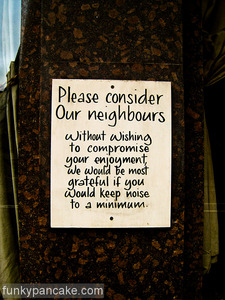 Please consider
Our neighbours
Without wishing
to compromise
your enjoyment,
we would be most
grateful if you
would keep noise
to a minimum.
funkypancake.com